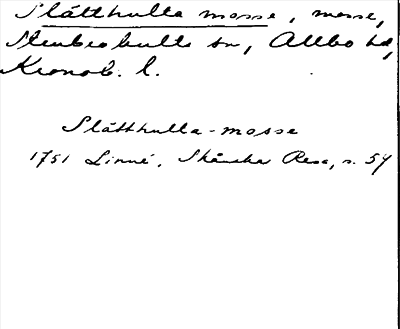 Slätthulta mosse, mosse,
Stenbrohults sn, Allbo hd,
Kronob. l.
Slätthulla-mosse
1751 Linné, Skånska Resa, s. 54